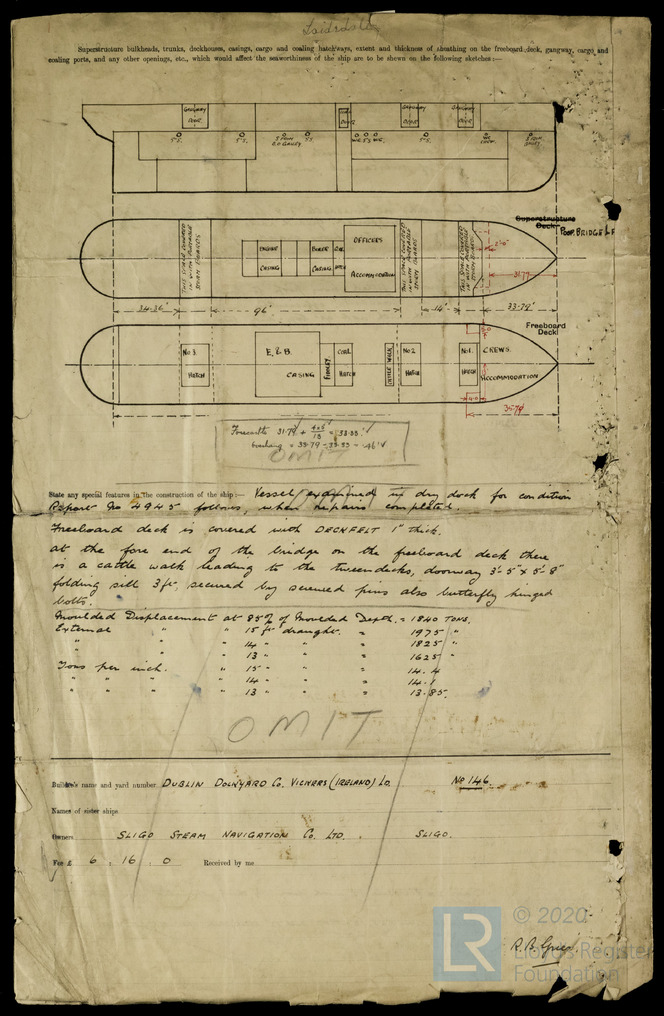 Superstructure bulkheads, trunks, deckhouses, casings, cargo and coaling hatchways, extent and thickness of sheathing on the freeboard deck, gangway, cargo and
coaling ports, and any other openings, etc., which would affect the seaworthiness of the ship are to be shewn on the following sketches:—
GANGWAY DOOR
DOOR
GANGWAY DOOR
GANGWAY DOOR
S.S. S.S. S.S. W.C. S.S. W.C. S.S.
Superstructure
Deck
POOP, BRIDGE &
THIS SPACE COVERED IN WITH PORTABLE STORM BOARDS
ENGINE CASING
BOILER CASING
OFFICERS
ACCOMMODATION
THIS SPACE COVERED IN WITH PORTABLE STORM BOARDS
THIS SPACE COVERED IN WITH PORTABLE STORM BOARDS
31.79
34.36' 96' 14' 33.79'
Freeboard
Deck
No 3 HATCH
E. & B. CASING
FIDDLEY
COAL HATCH
CATTLE WALK
No 2 HATCH
No 1. HATCH
CREWS.
ACCOMMODATION
35.79
Forecastle 31.79 + = 33.33
Overhang = 33.79 - 33.33 = .46'
OMIT
State any special features in the construction of the ship:— Vessel examined in dry dock for condition
Report No 4945 follows, when repairs completed.
Freeboard deck is covered with DECKFELT 1" thick.
at the fore end of the bridge on the freeboard deck there
is a cattle walk leading to the tweendecks, doorway 3'-5" x 5'-8"
folding sill 3ft, secured by screwed pins also butterfly hinged
bolts.
Moulded Displacement at 85% of Moulded Depth. = 1840 TONS.
External " " 15 ft draught. = 1975 "
" " " 14 " " = 1825 "
" " " 13 " " = 1625 "
Tons per inch. " 15 " " = 14.4
" " " " 14 " " = 14.1
" " " " 13 " " = 13.85
OMIT
Builder's name and yard number DUBLIN DOCKYARD CO. VICKERS (IRELAND) LD. No 146.
Names of sister ships
Owners SLIGO STEAM NAVIGATION CO. LTD. SLIGO.
Fee £ 6 . 16 . 0 Received by me
© 2020
Lloyd's Register
Foundation